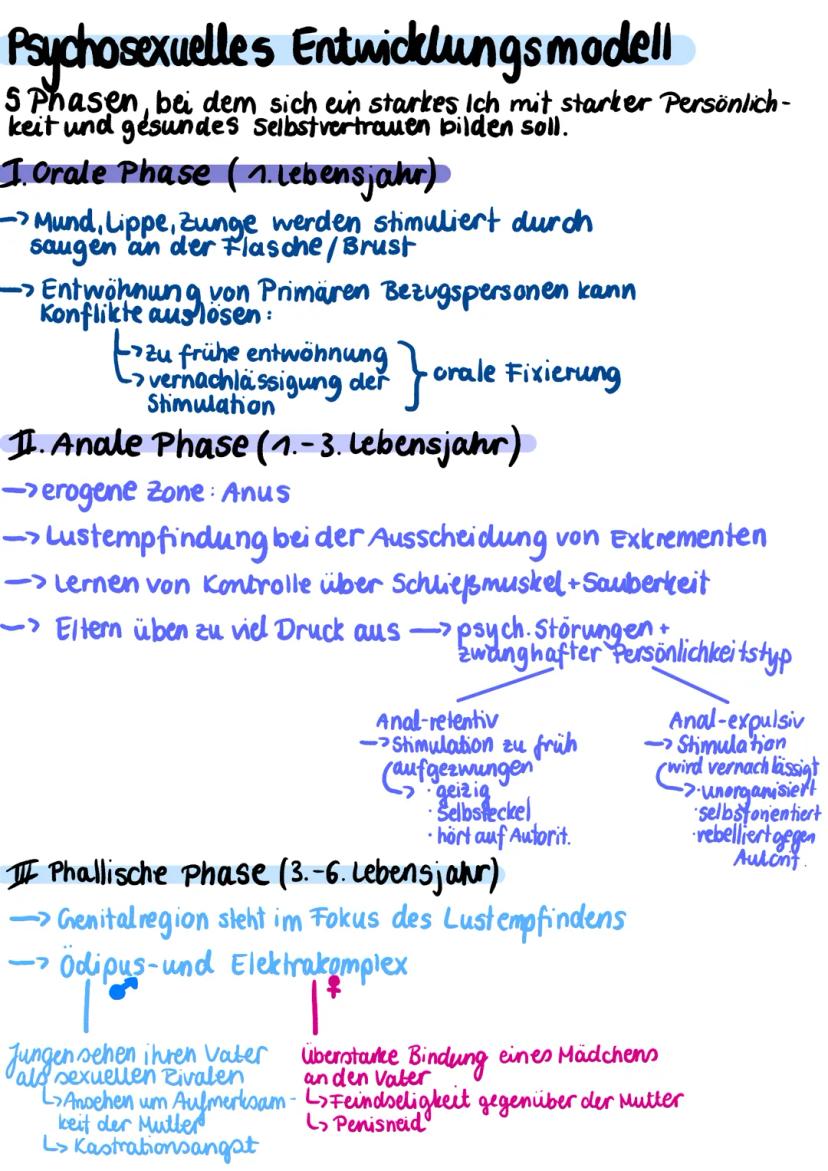 Psychosexuelles Entwicklungsmodell
5 Phasen, bei dem sich ein starkes Ich mit starker Persönlich-
keit und gesundes Selbstvertrauen bilden soll.
I. Orale Phase (1. Lebensjahr)
-> Mund, Lippe, Zunge werden stimuliert durch
saugen an der Flasche/Brust
-> Entwöhnung von Primären Bezugspersonen kann
Konflikte auslösen:
↳ zu frühe entwöhnung
↳ vernachlässigung der
Stimulation
} orale Fixierung
II. Anale Phase (1.-3. Lebensjahr)
-> erogene Zone: Anus
-> Lustempfindung bei der Ausscheidung von Exkrementen
-> Lernen von Kontrolle über Schließmuskel + Sauberkeit
-> Eltern üben zu viel Druck aus -> psych. Störungen +
zwanghafter Persönlichkeitstyp
Anal-retentiv
-> Stimulation zu früh
aufgezwungen
-> · geizig
· Selbsteckel
· hört auf Autorit.
Anal-expulsiv
-> Stimulation
wird vernachlässigt
-> · unorganisiert
· selbstorientiert
· rebelliert gegen
Autorit.
III Phallische Phase (3.-6. Lebensjahr)
-> Genitalregion steht im Fokus des Lustempfindens
-> Ödipus- und Elektrakomplex
♂ ♀
Jungen sehen ihren Vater
als sexuellen Rivalen
↳ Ansehen um Aufmerksam-
keit der Mutter
↳ Kastrationsangst
Überstarke Bindung eines Mädchens
an den Vater
↳ Feindseligkeit gegenüber der Mutter
↳ Penisneid